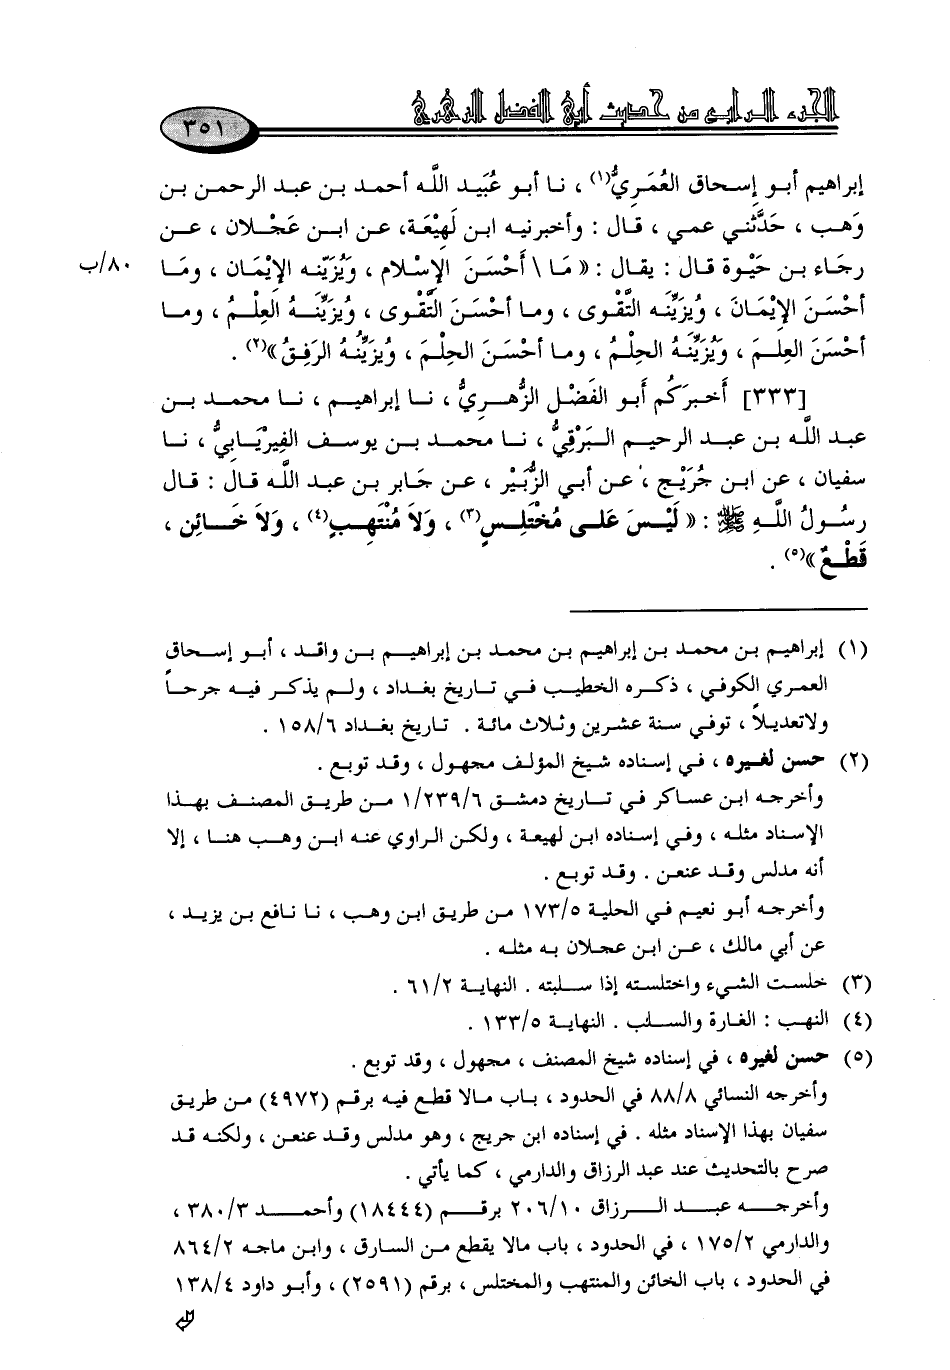 الجزء الرابع من حديث أبي الفضل الزهري
٣٥١
إبراهيم أبو إسحاق العُمَريُّ(١) ، نا أبو عُبَيد اللَّه أحمد بن عبد الرحمن بن
وَهب ، حَدَّثني عمي ، قال : وأخبرنيه ابن لَهِيْعَة، عن ابن عَجْلان ، عن
رجَاء بن حَيْوة قال : يقال : « مَا \ أَحْسَنَ الإِسْلام ، ويُزَيّنه الإِيْمَان ، ومَا
٨٠/ب
أحْسَنَ الإِيْمَانَ ، ويُزيِّنه التَّقْوى ، وما أحْسَنَ التَّقْوى ، ويُزيِّنهُ العِلْمُ ، وما
أحْسَنَ العِلمَ ، وَيُزَيِّنَهُ الحِلْمُ ، وما أحْسَنَ الحِلْمَ ، ويُزيِّنُهُ الرَفِقُ »(٢) .
[٣٣٣] أَخبرَكُم أبو الفَضْل الزُّهريُّ ، نا إبراهيم ، نا محمد بن
عبد اللَّه بن عبد الرحيم البَرْقِيُّ ، نا محمد بن يوسف الفِيْريَابيُّ ، نا
سفيان ، عن ابن جُرَيْج ، عن أبي الزُّبَيْر ، عن جَابر بن عبد اللَّه قال : قال
رسُولُ اللَّهِ ﷺ : « لَيْسَ عَلى مُخْتَلِسٍ(٣) ، وَلاَ مُنْتَهِبٍ(٤) ، وَلاَ خَائِنٍ ،
قَطْعٌ »(٥) .
(١) إبراهيم بن محمد بن إبراهيم بن محمد بن إبراهيم بن واقد ، أبو إسحاق
العمري الكوفي ، ذكره الخطيب في تاريخ بغداد ، ولم يذكر فيه جرحاً
ولاتعديلاً ، توفي سنة عشرين وثلاث مائة . تاريخ بغداد ١٥٨/٦ .
(٢) حسن لغيره ، في إسناده شيخ المؤلف مجهول ، وقد توبع .
وأخرجه ابن عساكر في تاريخ دمشق ١/٢٣٩/٦ من طريق المصنف بهذا
الإسناد مثله ، وفي إسناده ابن لهيعة ، ولكن الراوي عنه ابن وهب هنا ، إلا
أنه مدلس وقد عنعن . وقد توبع .
وأخرجه أبو نعيم في الحلية ١٧٣/٥ من طريق ابن وهب ، نا نافع بن يزيد ،
عن أبي مالك ، عن ابن عجلان به مثله .
(٣) خلست الشيء واختلسته إذا سلبته . النهاية ٦١/٢ .
(٤) النهب : الغارة والسلب . النهاية ١٣٣/٥ .
(٥) حسن لغيره ، في إسناده شيخ المصنف ، مجهول ، وقد توبع .
وأخرجه النسائي ٨٨/٨ في الحدود ، باب مالا قطع فيه برقم (٤٩٧٢) من طريق
سفيان بهذا الإسناد مثله . في إسناده ابن جريج ، وهو مدلس وقد عنعن ، ولكنه قد
صرح بالتحديث عند عبد الرزاق والدارمي ، كما يأتي .
وأخرجه عبد الرزاق ٢٠٦/١٠ برقم (١٨٤٤٤) وأحمد ٣٨٠/٣ ،
والدارمي ١٧٥/٢ ، في الحدود ، باب مالا يقطع من السارق ، وابن ماجه ٨٦٤/٢
في الحدود ، باب الخائن والمنتهب والمختلس ، برقم (٢٥٩١) ، وأبو داود ١٣٨/٤